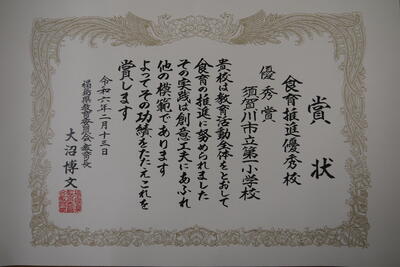 賞状
食育推進優秀校
優秀賞
須賀川市立第一小学校
貴校は教育活動全体をとおして
食育の推進に努められました
その実践は創意工夫にあふれ
他の模範であります
よってその功績をたたえこれを
賞します
令和六年二月十三日
福島県教育委員会教育長
大沼博文